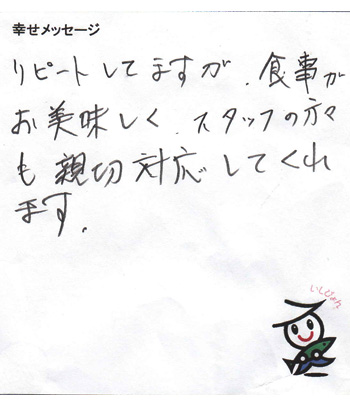 幸せメッセージ
リピートしてますが、食事が
お美味しく、スタッフの方々
も親切対応してくれ
ます。
いしじょん